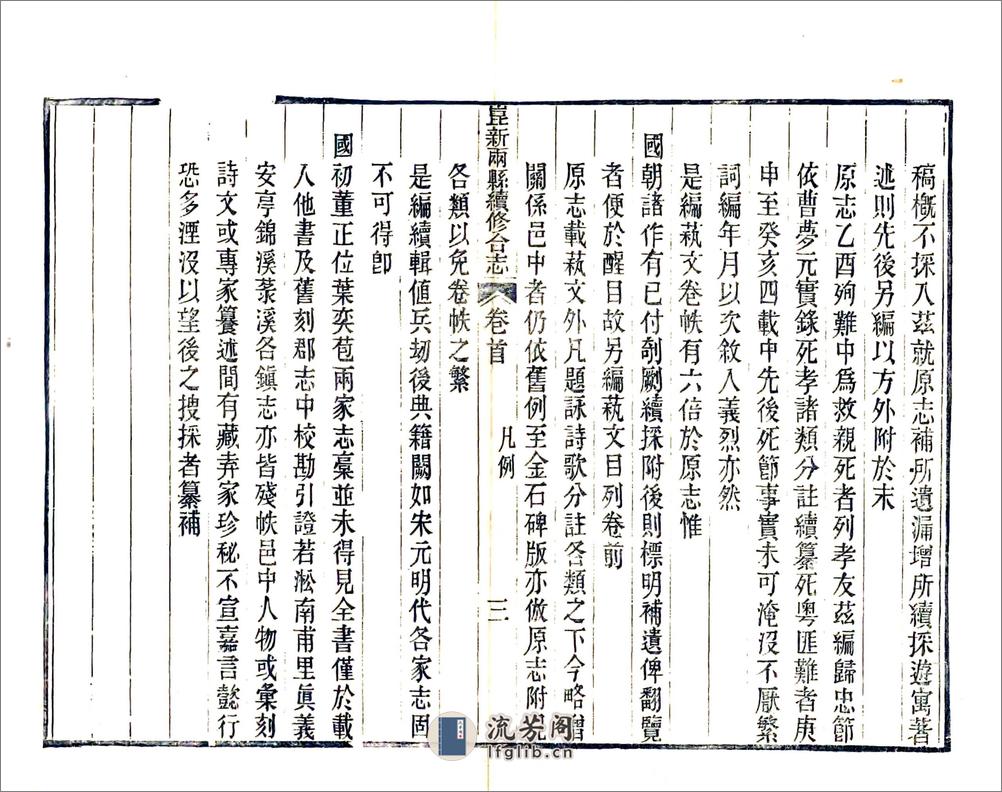 稿概不採入茲就原志補所遺漏增所續採遊寓著
述則先後另編以方外附於末
原志乙酉殉難中爲救親死者列孝友茲編歸忠節
依曹夢元實錄死孝諸類分註續纂死粵匪難者庚
申至癸亥四載中先後死節事實未可淹沒不厭繁
詞編年月以次敘入義烈亦然
是編蓺文卷帙有六倍於原志惟
國朝諸作有已付剞劂續採附後則標明補遺俾翻覽
者便於醒目故另編蓺文目列卷前
原志載蓺文外凡題詠詩歌分註各類之下今略增
關係邑中者仍依舊例至金石碑版亦倣原志附
各類以免卷帙之繁
崑新兩縣續修合志 卷首 凡例 三
是編續輯値兵刼後典籍闕如宋元明代各家志固
不可得卽
國初董正位葉奕苞兩家志稾並未得見全書僅於載
入他書及舊刻郡志中校勘引證若淞南甫里眞義
安亭錦溪菉溪各鎭志亦皆殘帙邑中人物或彙刻
詩文或專家纂述間有藏弆家珍秘不宣嘉言懿行
恐多湮沒以望後之搜採者纂補
流芳阁
lfglib.cn